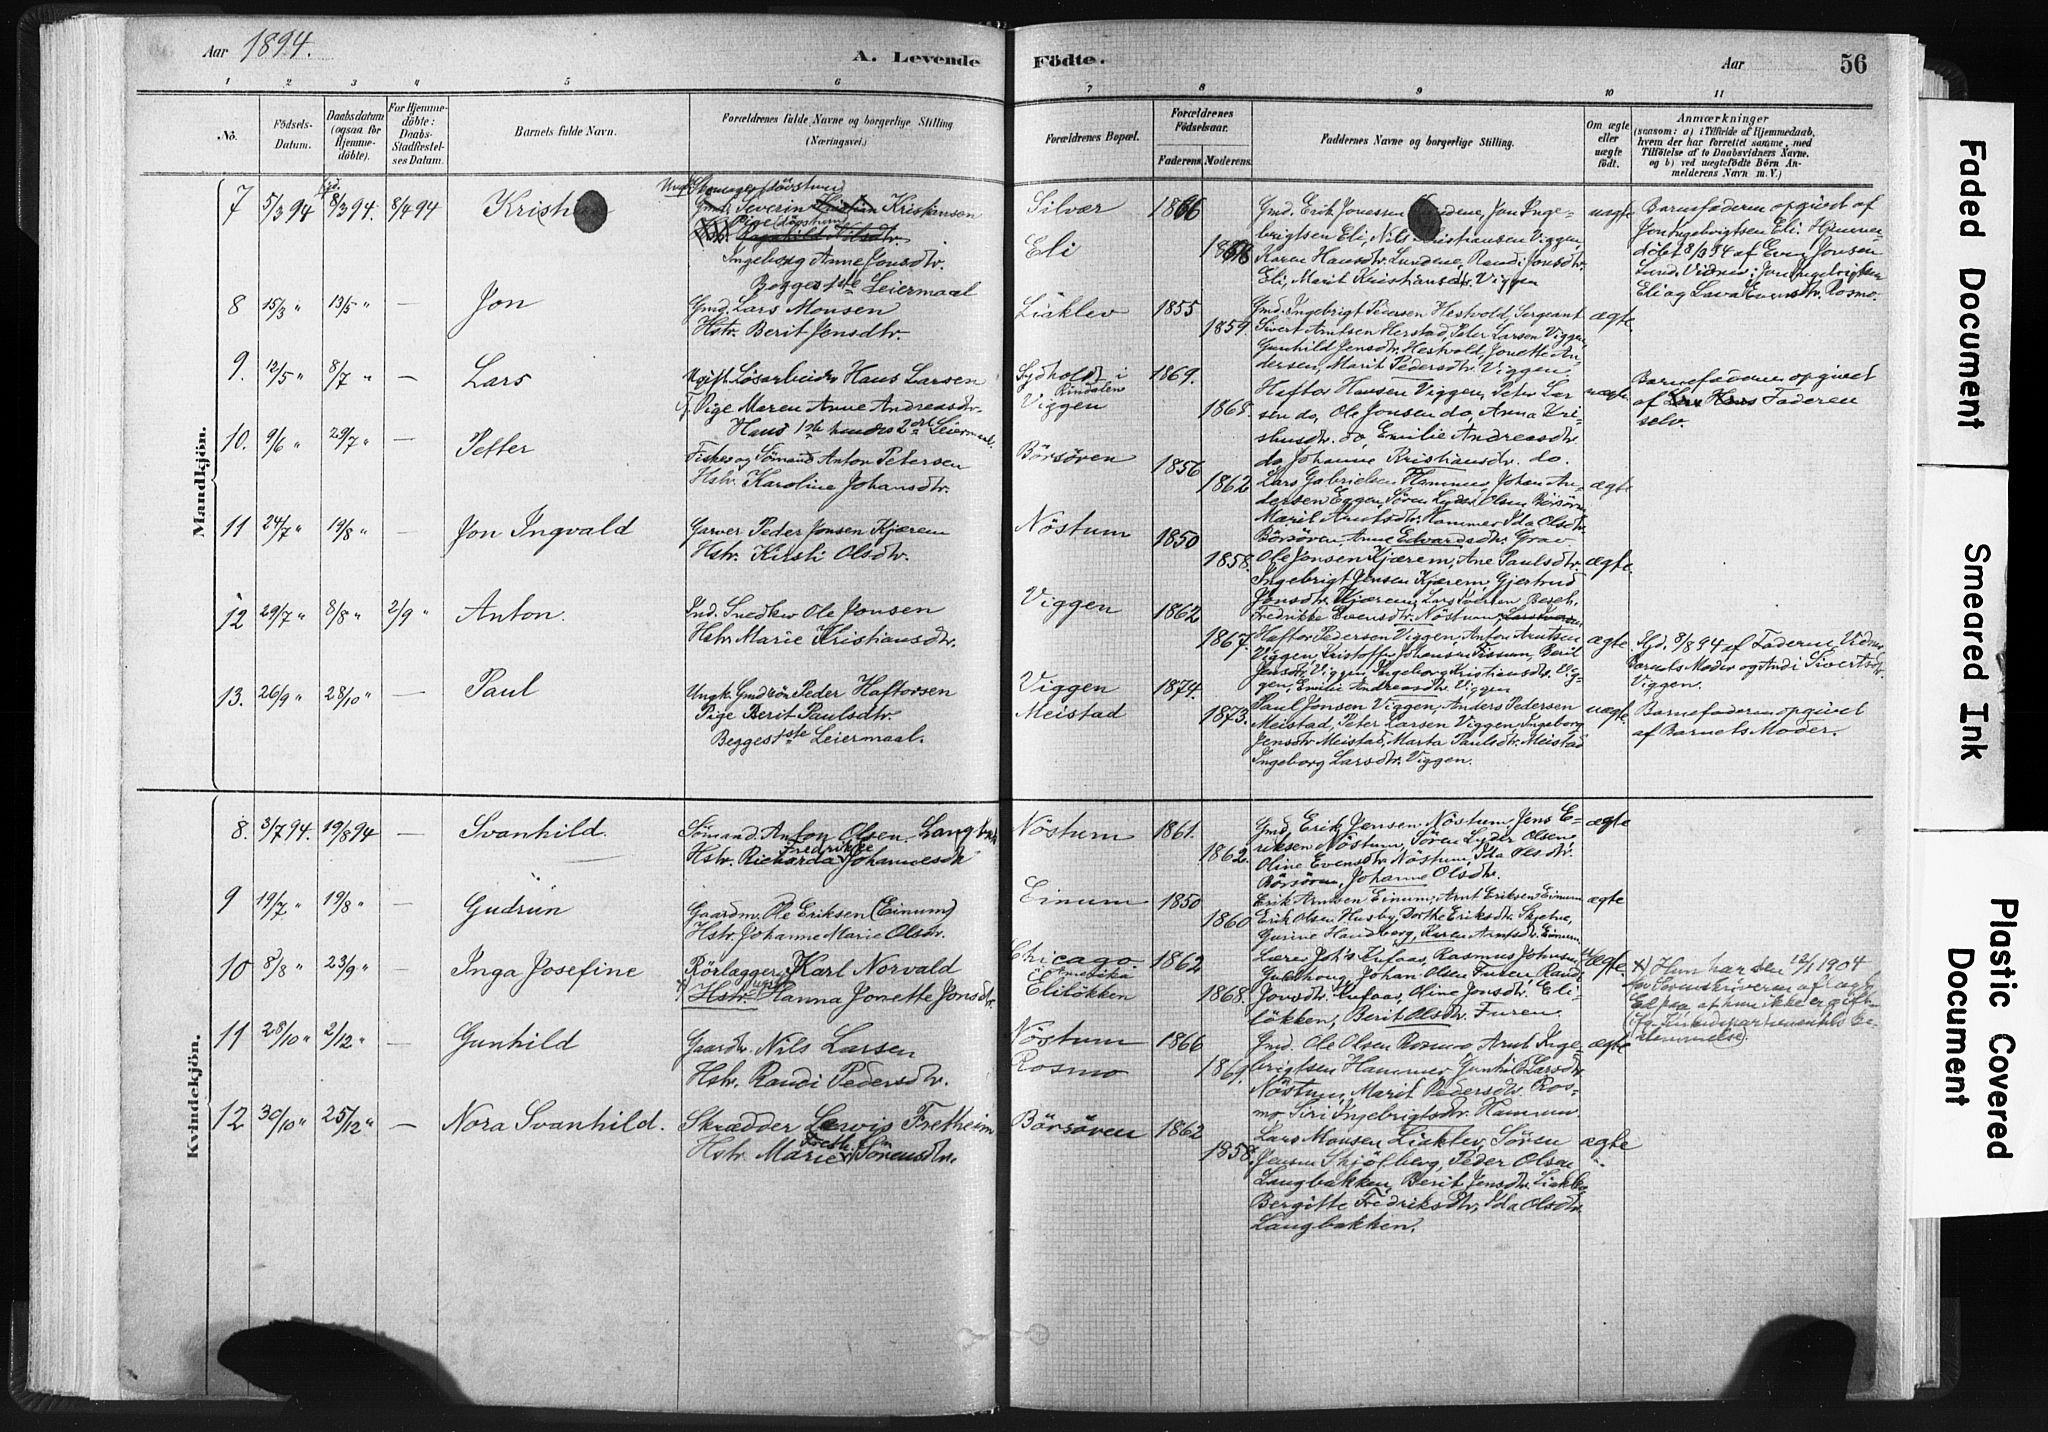 Aar 1894.
A. Levende Födte.
Aar
56
1 2 3 " 5 6 7 8 9 10 11
No.
Födsels-Datum.
Daabsdatum (ogsaa for Hjemme-döbte).
For Hjemme-döbte: Daabs-Stadfæstel-ses Datum.
Barnets fulde Navn.
Forældrenes fulde Navne og borgerlige Stilling (Næringsvei.)
Forældrenes Bopæl.
Forældrenes Födselsaar.
Faderens. Moderens.
Faddernes Navne og borgerlige Stilling.
Om ægte eller uægte födt.
Anmærkninger
(saasom: a) i Tilfælde af Hjemmedaab,
hvem der har forrettet samme, med
Tilföielse af to Daabsvidners Navne.
og b) ved uægtefödte Börn An-
melderens Navn m. V.)
Mandkjön.
7 5/3 94 hjd. 8/3 94. 8/4 94
Severin Kristiansen
Ingeborg Anne Jonsdtr.
Begges 1ste Leiermaal
Silvær 1866
Eli
Gmd. Erik Jonessen
Jon Inge-
brigtsen Eli, Nils Kristiansen Viggen,
Karen Hansdtr. Lundene, Randi Jonsdtr.
Eli, Marit Kristiansdtr. Viggen
uægte
Barnefaderen opgivet af
Jon Ingebrigtsen Eli. Hjemme-
döbt 8/3 94 af Even Jonsen
Lund. Vidner: Jon Ingebrigtsen
Eli og Evensdtr. Rosmo.
8 15/3 " 13/5 " — Jon
Gmd. Lars Monsen
Hstr. Berit Jensdtr.
Liaklev 1855 1859.
Gmd. Ingebrigt Pedersen Hestvold, Sergeant
Sivert Arntsen Herstad, Peter Larsen Viggen,
Gunhild Jensdtr. Hestvold, Jonette An-
dersen, Marit Pedersdtr. Viggen
ægte
9. 12/5 " 8/7 " — Lars
Ugift Lösarbeider Hans Larsen
Pige Maren Anne Andreasdtr.
Hans 1ste hendes 2det Leiermaal.
Sydholdt i Rindalen
Viggen
1869. 1868.
Haftor Hansen Viggen, Peter Lar-
sen do, Ole Jonsen do, Anna Kri-
stiansdtr. do, Emilie Andreasdtr.
do, Johanne Kristiansdtr. do.
uægte
Barnefaderen opgivet
af Faderen
selv.
10. 9/6 " 29/7 " — Petter
Fisker og Sömand Anton Petersen
Hstr. Karoline Johansdtr.
Börsören 1856 1862
Lars Gabrielsen Hammer, Johan An-
dersen Eggen, Sören Lyder Olsen Börsören,
Marit Arntsdtr. Hammer, Ida Olsdtr.
Börsören, Anne Edvardsdtr. Grav.
ægte
11 24/7 " 19/8 " — Jon Ingvald
Garver Peder Jonsen Kjærem
Hstr. Kirsti Olsdtr.
Nöstum 1850 1858.
Ole Jonsen Kjærem, Ane Paulsdtr.
Ingebrigt Jensen Kjærem, Gjertrud
Jonsdtr. Kjærem, Lars Iversen
Fredrikke Evensdtr. Nöstum
ægte.
12 29/7 " 8/8 " 2/9 " Anton.
Ind. Snedker Ole Jonsen
Hstr. Marie Kristiansdtr.
Viggen 1862 1867.
Haftor Pedersen Viggen, Anton Arntsen
Viggen, Kristoffer Johansen Tissum, Berit
Jensdtr. Viggen, Ingeborg Kristiansdtr. Vig-
gen, Emilie Andreasdtr. Viggen
ægte.
Hjd. 8/8 94 af Faderen. Vidner,
Barnets Moder og Andi Sivertsdtr.
Viggen.
13. 26/9 " 28/10 " — Paul
Ungk. Gmdsön Peder Haftorsen
Pige Berit Paulsdtr.
Begges 1ste Leiermaal.
Viggen 1874.
Meistad 1873.
Paul Jonsen Viggen, Anders Pedersen
Meistad, Peter Larsen Viggen, Ingeborg
Jensdtr. Meistad, Marta Paulsdtr. Meistad
Ingeborg Larsdtr. Viggen.
uægte
Barnefaderen opgivet
af Barnets Moder.
Kvindekjön.
8. 3/7 94. 19/8 94 — Svanhild.
Sömand. Anton Olsen Langbak
Hstr. Richarda Fredrikke Johannesdtr
Nöstum 1861. 1862.
Gmd. Erik Jensen Nöstum, Jens E-
riksen Nöstum, Sören Lyder Olsen,
Oline Evensdtr. Nöstum, Ida Olsdtr.
Börsören, Johanne Olsdtr.
ægte
9 19/7 " 19/8 " — Gudrun
Gaardm. Ole Eriksen (Einum)
Hstr. Johanne Marie Olsdtr.
Einum 1850 1860
Erik Arntsen Einum, Arnt Eriksen Einum
Erik Olsen Husby, Dorthe Eriksdtr. Skjetne,
Gurine Handberg, Karen Arntsdtr. Einum
ægte
10 8/8 " 23/9 " — Inga Josefine
Rörlægger Karl Norvald
x) Hstr. ugift Hanna Jonette Jonsdtr.
Chicago Amerika
Eliløkken
1862 1868.
Lærer Joh's Kufaas, Rasmus Johnsen
Gulehaug, Johan Olsen Furen, Randi
Jonsdtr. Kufaas, Oline Jonsdtr. Eli-
løkken, Berit Olsdtr. Furen.
x) ægte.
x) Hun har den 12/1 1904
for Sorenskriveren aflagt
Ed paa at hun ikke er gift
11 28/10 " 2/12 " — Gunhild
Gaardbr. Nils Larsen
Hstr. Randi Pedersdtr.
Nöstum
Rosmo
1866 1869.
Gmd. Ole Olsen Rosmo, Arnt Inge-
brigtsen Hammer, Gunhild Larsdtr.
Nöstum, Marit Pedersdtr. Ros-
mo, Siri Ingebrigtsdtr. Hammer
ægte
12 30/10 " 25/12 " — Nora Svanhild.
Skrædder Lervis Fretheim
Hstr. Marie Sörensdtr.
Börsören 1862 1858.
Lars Monsen Liaklev, Sören
Jensen Skjölberg, Peder Olsen
Langbakken, Berit Jensdtr. Liaklev
Bergitte Fredriksdtr, Ida Olsdtr.
Langbakken.
ægte
Faded Document
Smeared Ink
Plastic Covered Document